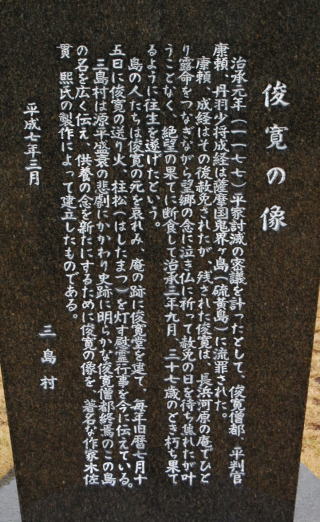 俊寛の像
治承元年(一一七七)平家討滅の密議を計ったとして、俊寛僧都、平判官
康頼、丹羽少将成経は薩摩国鬼界ヶ島(硫黄島)に流罪された。
康頼、成経はその後赦免されたが、残された俊寛は、長浜河原の庵でひと
り露命をつなぎながら望郷の念に泣き仏に祈って赦免の日を待ち焦れたが叶
うことなく、絶望の果てに断食して治承三年九月、三十七歳のとき朽ち果て
るように往生を遂げたという。
島の人たちは俊寛の死を哀れみ、庵の跡に俊寛堂を建て、毎年旧暦七月十
五日に俊寛の送り火、柱松(はしたまつ)を灯す慰霊行事を今に伝えている。
三島村は源平盛衰の悲劇にかかわり史跡に明らかな俊寛僧都終焉のこの島
の名を広く伝え、供養の念を新たにするために俊寛の像を、著名な作家木佐
貫 熙氏の製作によって建立したものである。
平成七年三月
三島村